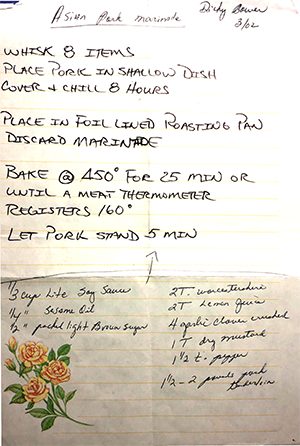 Asian Pork marinade
Dicky Bower
3/02
WHISK 8 ITEMS
PLACE PORK IN SHALLOW DISH
COVER + CHILL 8 HOURS
PLACE IN FOIL LINED ROASTING PAN
DISCARD MARINADE
BAKE @ 450° FOR 25 MIN OR
UNTIL A MEAT THERMOMETER
REGISTERS 160°
LET PORK STAND 5 MIN
1/3 cup Lite Soy Sauce
1/4 " Sesame Oil
1/2 " packed light Brown sugar
2T. worcestershire
2T Lemon Juice
4 garlic cloves crushed
1 T dry mustard
1 1/2 t. pepper
1 1/2 - 2 pounds pork
tenderloin